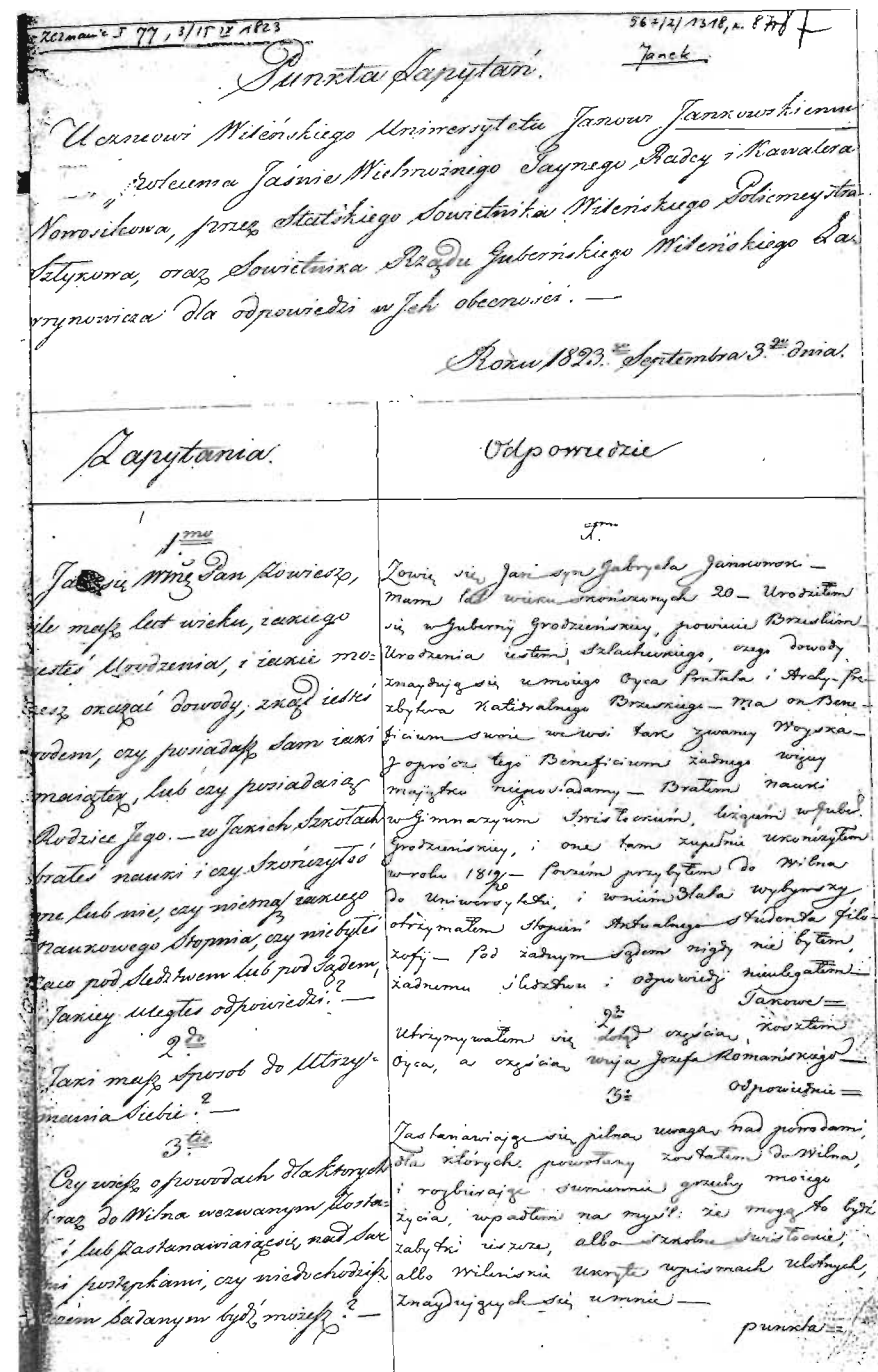 Zeznanie I 77, 3/15 IX 1823
567/2/1318, k. 87
Janek
Punkta Zapytań.
Uczniowi Wileńskiego Uniwersytetu Janowi Jankowskiemu
z polecenia Jaśnie Wielmożnego Taynego Radcy i Kawalera
Nowosilcowa, przez Statskiego Sowietnika Wileńskiego Policmeystra
Szłykowa, oraz Sowietnika Rządu Guberńskiego Wileńskiego Ła-
wrynowicza dla odpowiedzi w Jch obecności. —
Roku 1823.go Septembra 3.go dnia.
Zapytania.
Odpowiedzie
1mo
Jak się Pan zowiesz,
ile masz lat wieku, iakiego
iesteś Urodzenia, i iakie mo-
żesz okazać dowody, zkąd iesteś
rodem, czy posiadasz sam iaki
maiątek, lub czy posiadaią
Rodzice Jego. — w Jakich Szkołach
brałeś nauki i czy skończyłeś
one lub nie, czy niemasz iakiego
Naukowego Stopnia, czy niebyłeś
za co pod Sledztwem lub pod Sądem,
Jakiey uległeś odpowiedzi? —
2do
Jaki masz sposob do Utrzy-
mania Siebie? —
3tio
Czy wiesz o powodach dla ktorych
teraz do Wilna wezwanym zosta-
ł, lub zastanawiaiąc się nad Swe
mi postępkami, czy niedochodzisz
o czem badanym bydź możesz? —
1mo
Zowię się Jan syn Gabryela Jankowski —
mam lat wieku skończonych 20 — Urodziłem
się w Gubernij Grodzieńskiey, powiecie Brzeskim
Urodzenia iestem, szlacheckiego, czego dowody
znayduią się u moiego Oyca Prałata i Archy-Pre-
zbytera Katedralnego Brzeskiego — Ma on Bene-
ficium swoie we wsi tak zwaney Woyska —
J oprócz tego Beneficium żadnego więcey
majątku nieposiadamy — Brałem nauki
w Gimnazyum Swisłockiem, leżącem w Gub.
Grodzieńskiey, i one tam zupełnie ukończyłem
w roku 1819 — Poczém przybyłem do Wilna
do Uniwersytetu, i w niém 3 lata wybywszy
otrzymałem stopień Aktualnego studenta filo-
zofij — Pod żadnym sądem nigdy nie byłem,
żadnemu śledztwu i odpowiedzi nieulegałem —
Takowe =
2do
Utrzymywałem się dotąd częścią kosztem
Oyca, a częścią wuja Jozefa Romańskiego —
odpowiednie =
3o
Zastanawiając się pilną uwagą nad powodami,
dla których powołany zostałem do Wilna,
i rozbierając sumiennie grzechy moiego
życia, wpadłem na myśl: że mogą to bydź
zabytki ieszcze, albo szkolne swisłockie,
albo Wileńskie ukryte w pismach ulotnych,
znaydujących się u mnie —
punkta =